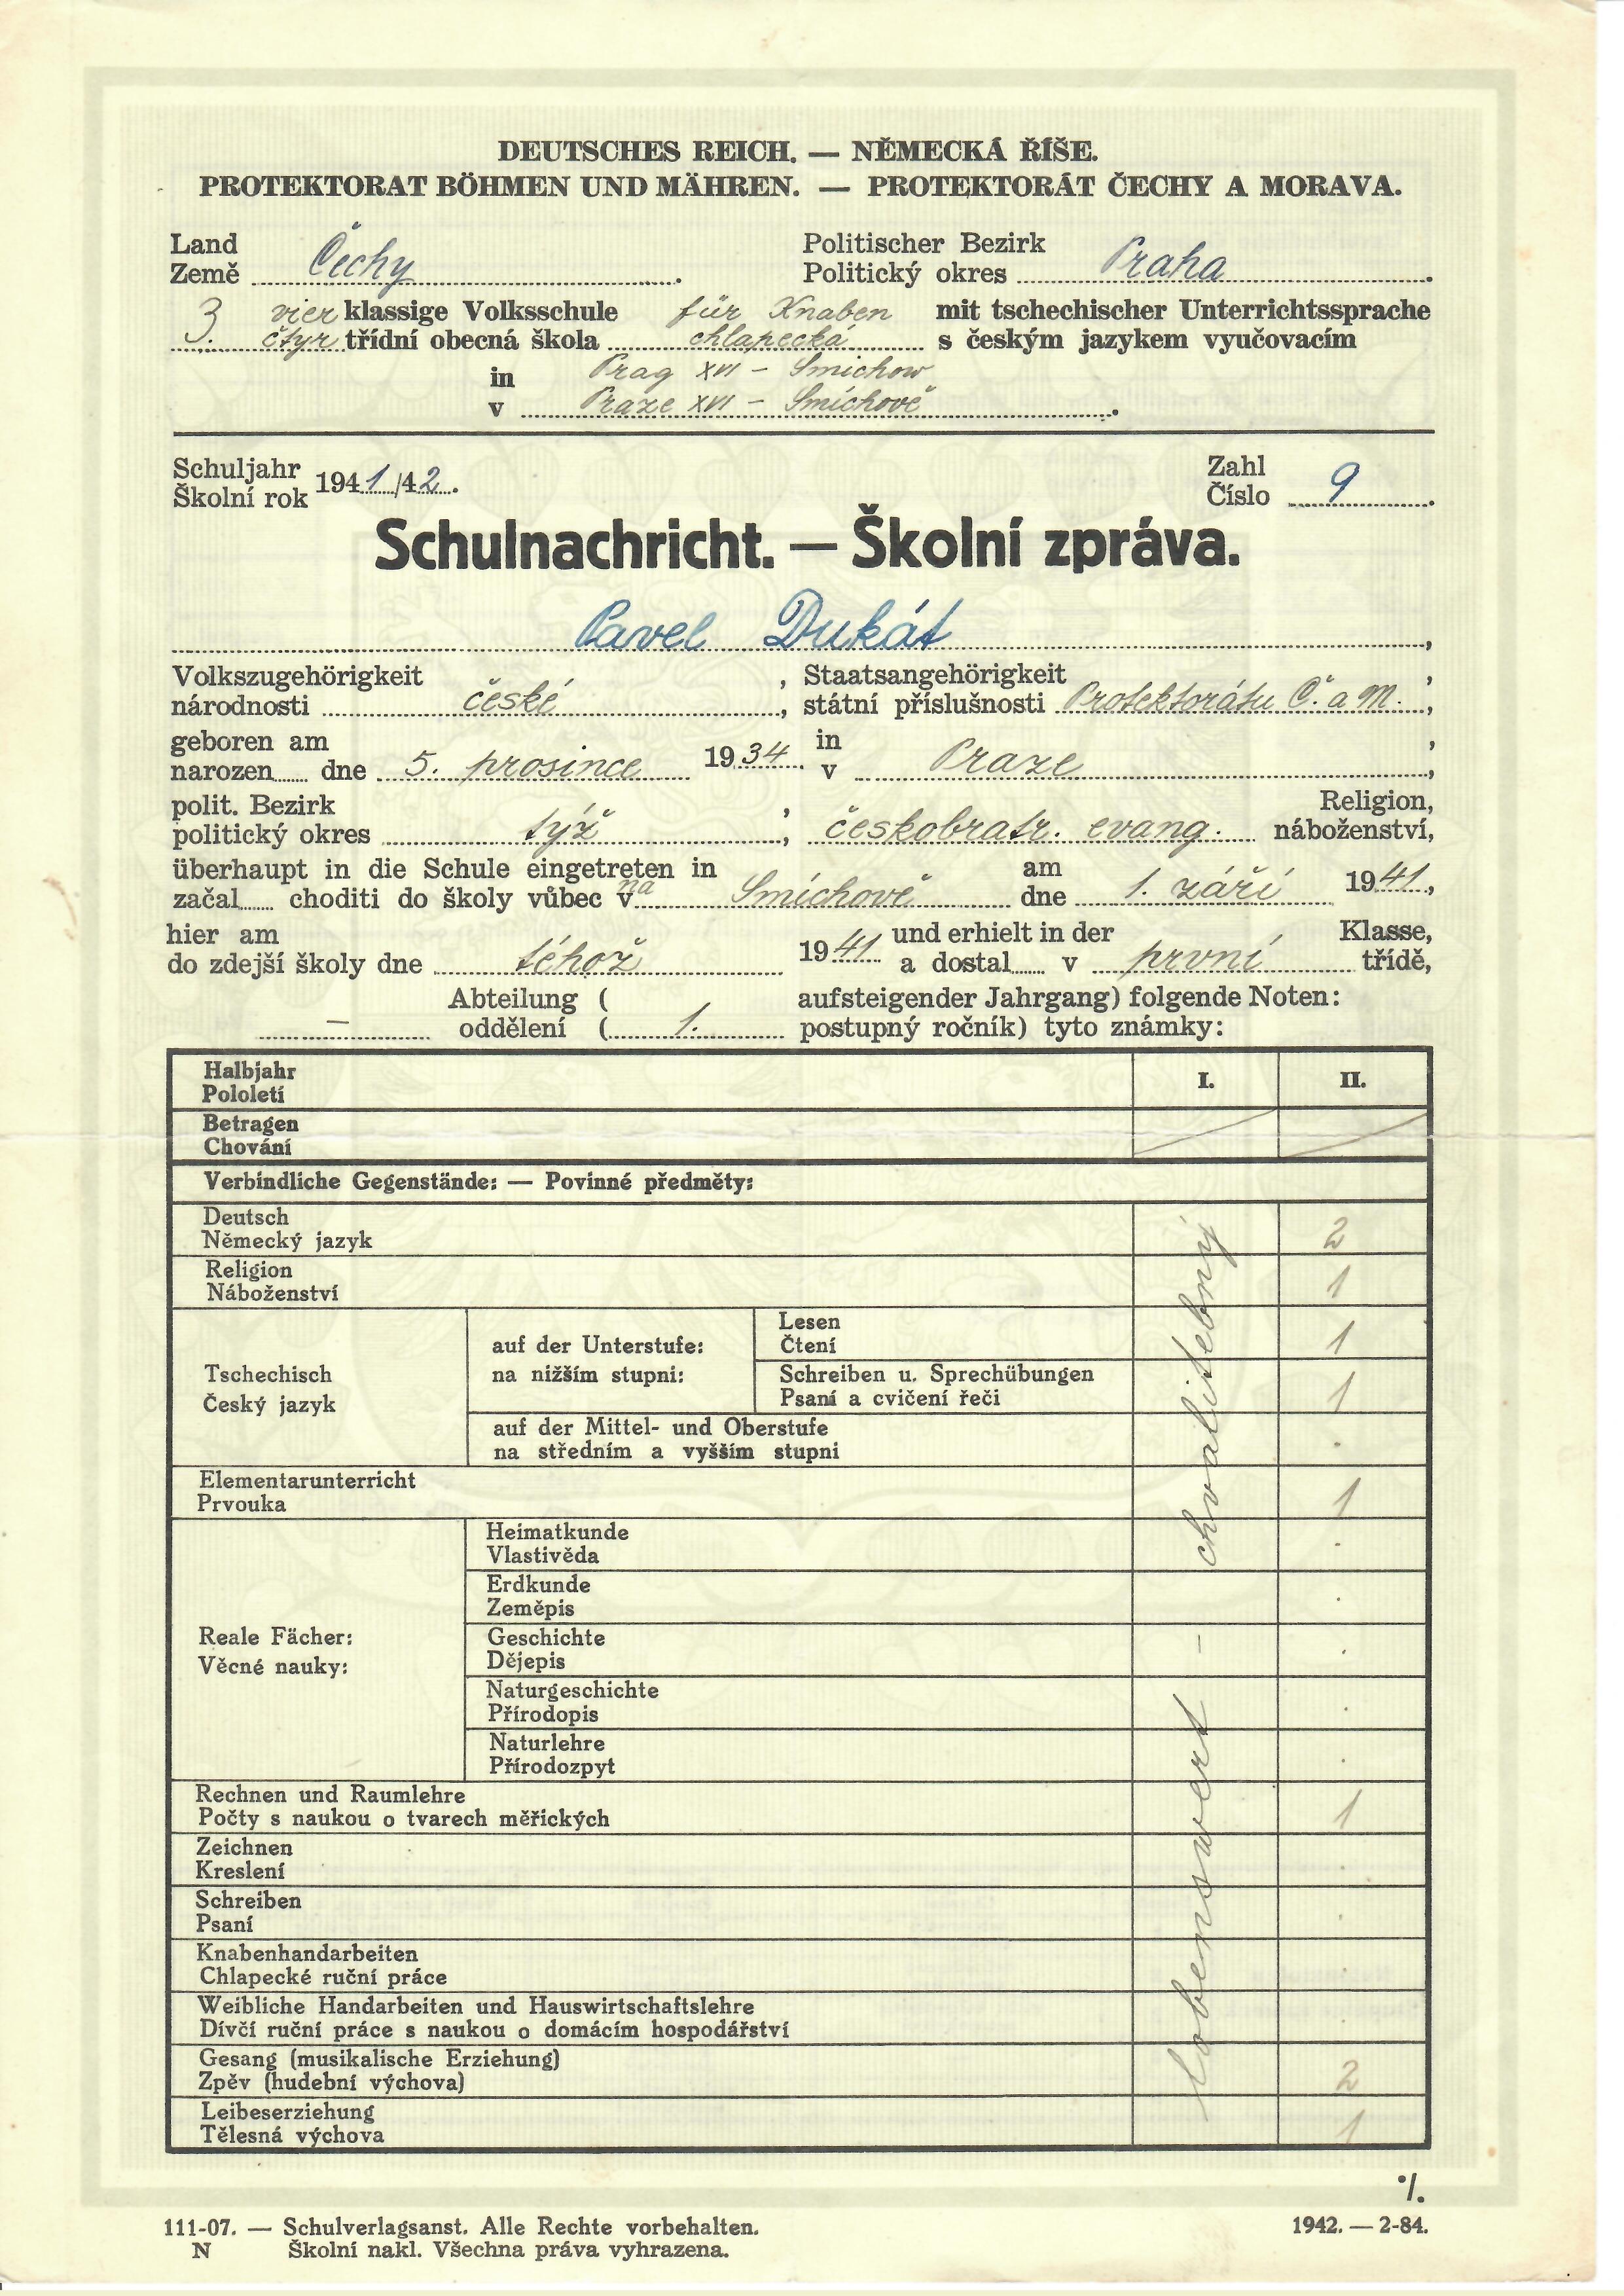 DEUTSCHES REICH. — NĚMECKÁ ŘÍŠE.
PROTEKTORAT BÖHMEN UND MÄHREN. — PROTEKTORÁT ČECHY A MORAVA.
Land Politischer Bezirk
Země Čechy. Politický okres Praha.
3. vier klassige Volksschule für Knaben mit tschechischer Unterrichtssprache
čtyř třídní obecná škola chlapecká s českým jazykem vyučovacím
in Prag XVI - Smichow
v Praze XVI - Smíchově.
Schuljahr Zahl
Školní rok 1941/42. Číslo 9.
Schulnachricht. — Školní zpráva.
Pavel Dukát,
Volkszugehörigkeit, Staatsangehörigkeit,
národnosti české, státní příslušnosti Protektorátu Č. a M.,
geboren am in,
narozen dne 5. prosince 1934. v Praze,
polit. Bezirk, Religion,
politický okres týž, českobratr. evang. náboženství,
überhaupt in die Schule eingetreten in am
začal choditi do školy vůbec v na Smíchově dne 1. září 1941,
hier am und erhielt in der Klasse,
do zdejší školy dne téhož 1941 a dostal v první třídě,
Abteilung ( aufsteigender Jahrgang) folgende Noten:
— oddělení (1. postupný ročník) tyto známky:
Halbjahr
Pololetí I. II.
Betragen
Chování
Verbindliche Gegenstände: — Povinné předměty:
Deutsch
Německý jazyk 2
Religion
Náboženství 1
Tschechisch
Český jazyk
auf der Unterstufe:
na nižším stupni:
Lesen
Čtení 1
Schreiben u. Sprechübungen
Psaní a cvičení řeči 1
auf der Mittel- und Oberstufe
na středním a vyšším stupni .
Elementarunterricht
Prvouka 1
Reale Fächer:
Věcné nauky:
Heimatkunde
Vlastivěda .
Erdkunde
Zeměpis .
Geschichte
Dějepis .
Naturgeschichte
Přírodopis .
Naturlehre
Přírodozpyt .
Rechnen und Raumlehre
Počty s naukou o tvarech měřických 1
Zeichnen
Kreslení .
Schreiben
Psaní .
Knabenhandarbeiten
Chlapecké ruční práce .
Weibliche Handarbeiten und Hauswirtschaftslehre
Dívčí ruční práce s naukou o domácím hospodářství .
Gesang (musikalische Erziehung)
Zpěv (hudební výchova) 2
Leibeserziehung
Tělesná výchova 1
lobenswert — chvalitebný
·/.
111-07. — Schulverlagsanst. Alle Rechte vorbehalten. 1942. — 2-84.
N Školní nakl. Všechna práva vyhrazena.